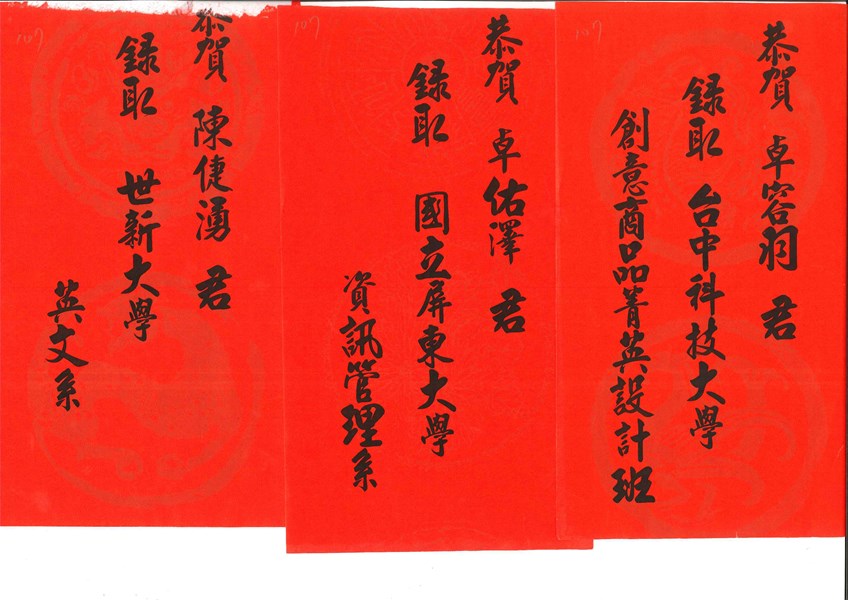 恭賀 卓容羽 君
録取 台中科技大學
創意商品菁英設計班
恭賀 卓佑澤 君
録取 國立屏東大學
資訊管理系
恭賀 陳倢湧 君
録取 世新大學
英文系
107
107
107